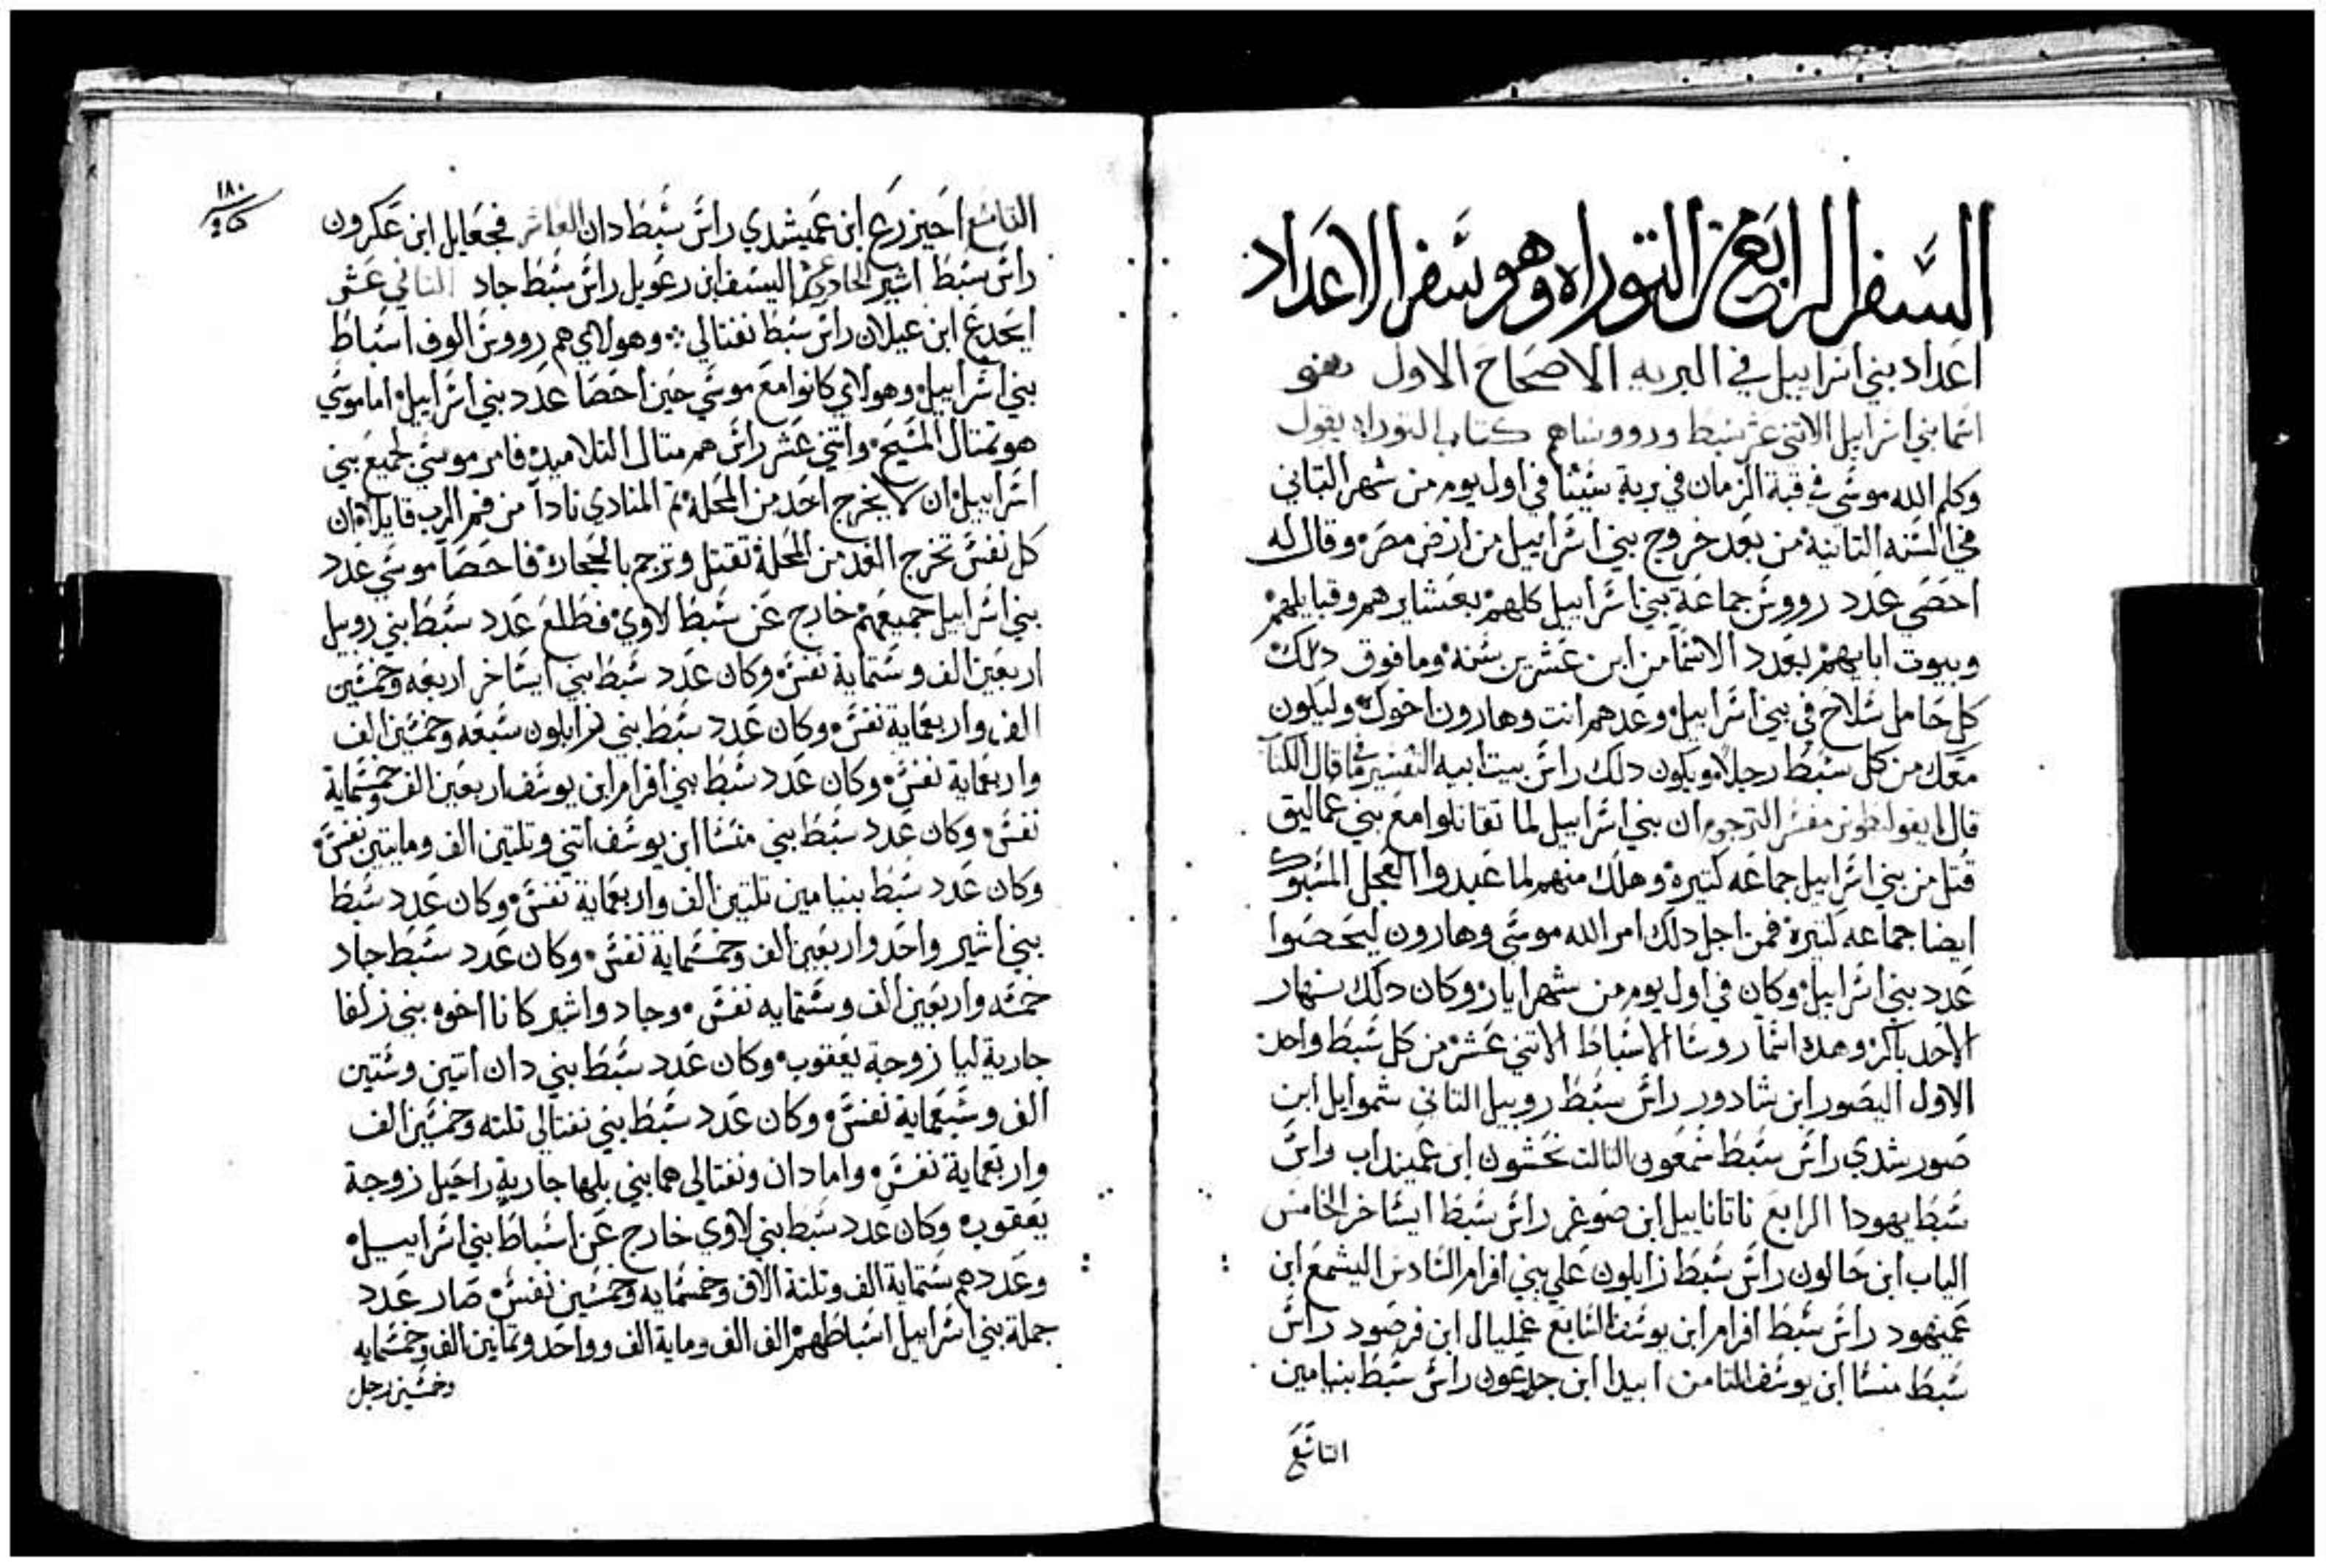 السفر الرابع من التوراه وهو سفر الاعداد
اعداد بني اسراييل في البريه الاصحاح الاول
اسما بني اسراييل الاتني عشر سبط ورووساهم كتاب التوراه يقول
وكلم الله موسي في قبة الزمان في برية سينا في اول يوم من شهر التاني
في السنه التانية من بعد خروج بني اسراييل من ارض مصر وقال له
احصي عدد رووس جماعة بني اسراييل كلهم بعشايرهم وقبايلهم
وبيوت ابايهم بعدد الاسما من ابن عشرين سنه وما فوق دلك
كل حامل سلاح في بني اسراييل وعدهم انت وهارون اخوك وليكون
معك من كل سبط رجلا ويكون دلك راس بيت ابيه التفسير فيما قال الكتاب
قال مفسر الترجوم ان بني اسراييل لما تقاتلوا مع بني عماليق
قتل من بني اسراييل جماعه كتيرة وهلك منهم لما عبدوا العجل المسبوك
ايضا جماعه كتيرة فمن اجل دلك امر الله موسي وهارون ليحصوا
عدد بني اسراييل وكان في اول يوم من شهر ايار وكان دلك نهار
الاحد باكر وهده اسما روسا الاسباط الاتني عشر من كل سبط واحد
الاول اليصور ابن شادور راس سبط روبيل التاني شموايل ابن
صور شدي راس سبط شمعون التالت نحشون ابن عميناداب راس
سبط يهودا الرابع ناتاناييل ابن صوغر راس سبط ايساخر الخامس
الياب ابن حالون راس سبط زابلون علي بني افرام السادس اليشمع ابن
عميهود راس سبط افرام ابن يوسف السابع غمليال ابن فرصود راس
سبط منسا ابن يوسف التامن ابيدا ابن جدعون راس سبط بنيامين
التاسع
١٨٠
التاسع احيزرع ابن عميشدي راس سبط دان العاشر فجعايل ابن عكرون
راس سبط اشير الحادي عشر اليسف ابن رعويل راس سبط جاد التاني عشر
ايحدع ابن عيلان راس سبط نفتالي وهولاي هم رووس الوف اسباط
بني اسراييل وهولاي كانوا مع موسي حين احصا عدد بني اسراييل اما موسي
هو تمتال المسيح واتني عشر راس هم متال التلاميد فامر موسي لجميع بني
اسراييل ان لا يخرج احد من المحلة تم المنادي نادا من فم الرب قايلا ان
كل نفس تخرج الغد من المحلة تقتل وترجم بالحجارة فاحصا موسي عدد
بني اسراييل جميعهم خارج عن سبط لاوي فطلع عدد سبط بني روبيل
اربعين الف وستماية نفس وكان عدد سبط بني ايساخر اربعه وخمسين
الف واربعماية نفس وكان عدد سبط بني زابلون سبعه وخمسين الف
واربعماية نفس وكان عدد سبط بني افرام ابن يوسف اربعين الف وخمسماية
نفس وكان عدد سبط بني منسا ابن يوسف اتني وتلتين الف ومايتين نفس
وكان عدد سبط بنيامين تلتين الف واربعماية نفس وكان عدد سبط
بني اشير واحد واربعين الف وخمسماية نفس وكان عدد سبط جاد
خمسه واربعين الف وستمايه نفس وجاد واشير كانا اخوه بني زلفا
جارية ليا زوجة يعقوب وكان عدد سبط بني دان اتنين وستين
الف وسبعماية نفس وكان عدد سبط بني نفتالي تلته وخمسين الف
واربعماية نفس واما دان ونفتالي هما بني بلها جارية راحيل زوجة
يعقوب وكان عدد سبط بني لاوي خارج عن اسباط بني اسراييل
وعددهم ستماية الف وتلتة الاف وخمسمايه وخمسين نفس صار عدد
جملة بني اسراييل اسباطهم الف الف وماية الف وواحد وتمانين الف وخمسمايه
وخمسين رجل